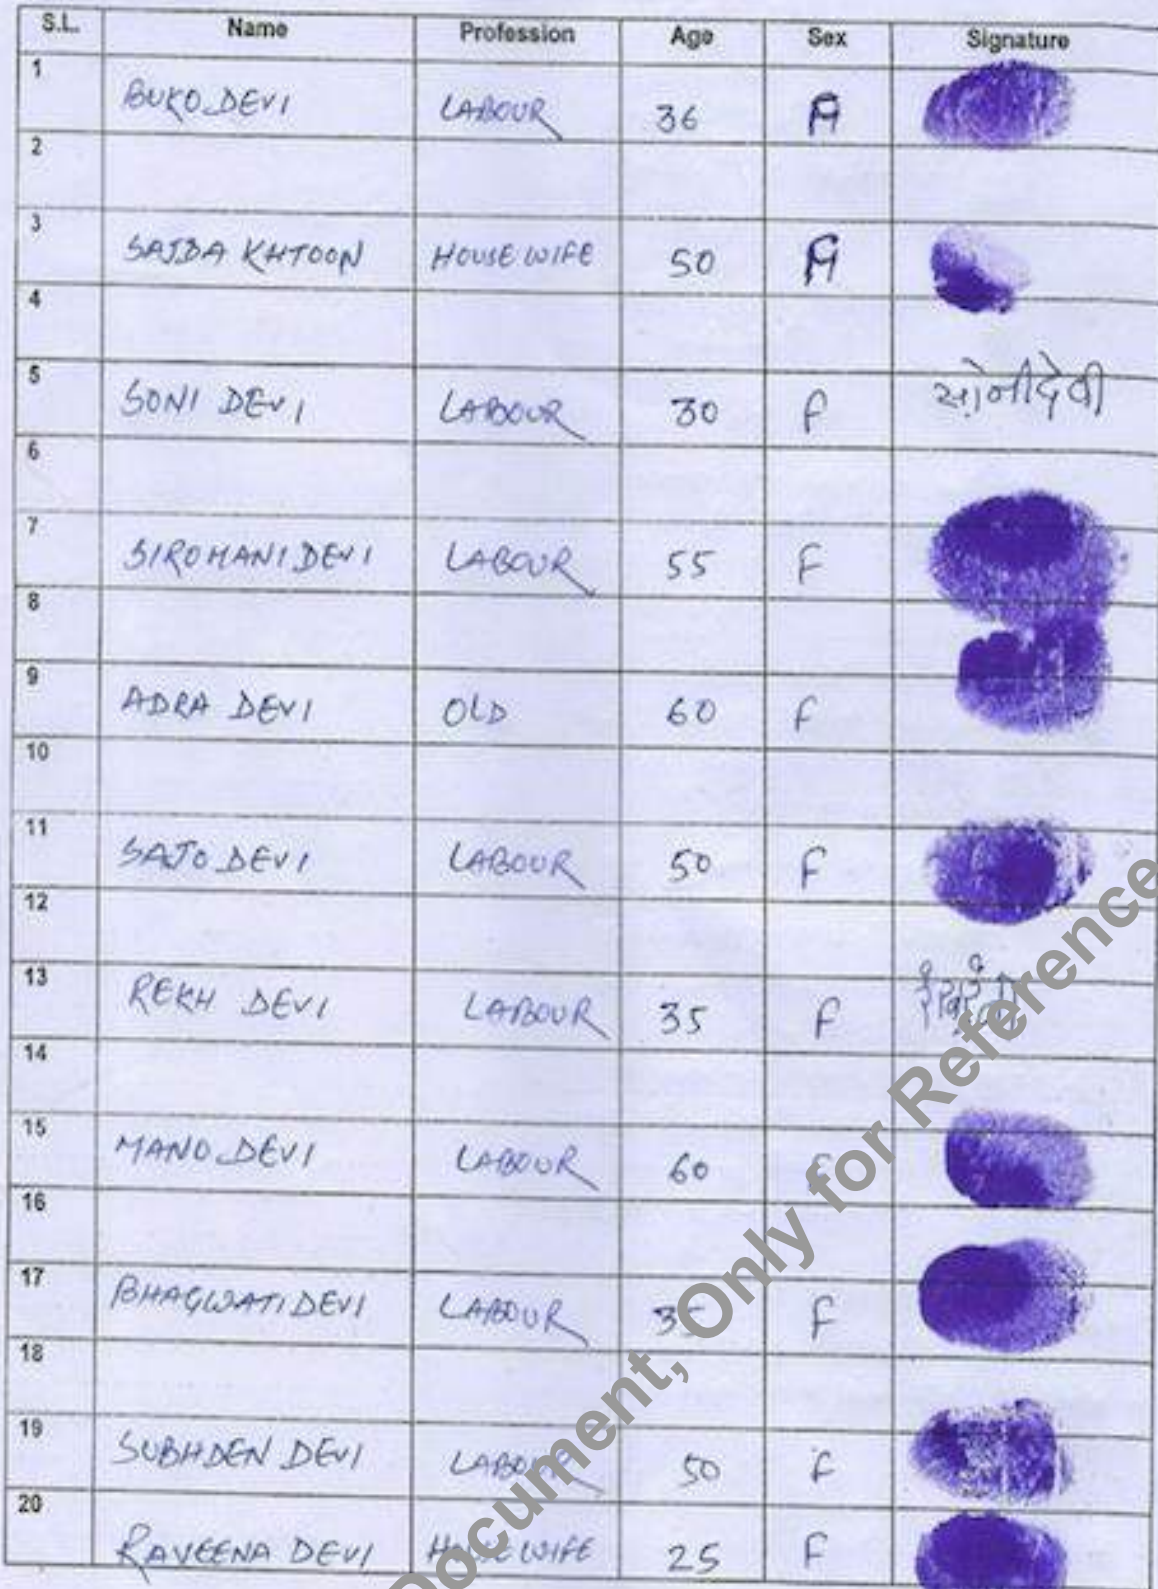 S.L. Name Profession Age Sex Signature
1 BUKO DEVI LABOUR 36 F
2
3 SAJDA KHTOON HOUSE WIFE 50 F
4
5 SONI DEVI LABOUR 30 F सोनीदेवी
6
7 SIROMANI DEVI LABOUR 55 F
8
9 ADRA DEVI OLD 60 F
10
11 SAJO DEVI LABOUR 50 F
12
13 REKH DEVI LABOUR 35 F
14
15 MANO DEVI LABOUR 60 F
16
17 BHAGWATI DEVI LABOUR 35 F
18
19 SUBHDEN DEVI LABOUR 50 F
20 RAVEENA DEVI HOUSE WIFE 25 F
Document, Only for Reference